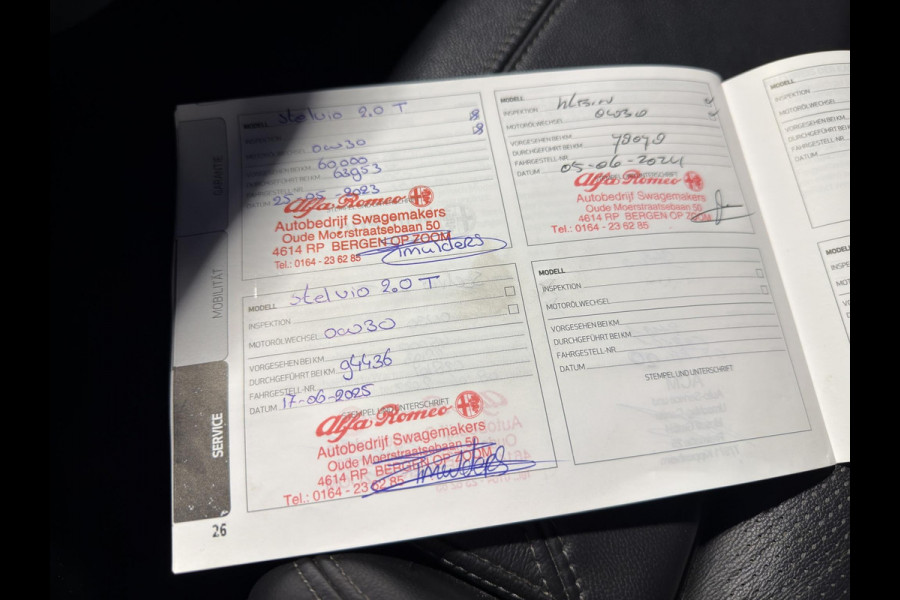 GARANTIE
MOBILITÄT
SERVICE
26
MODELL Stelvio 2.0 T
INSPEKTION
MOTORÖLWECHSEL 0W30
VORGESEHEN BEI KM 60.000
DURCHGEFÜHRT BEI KM 63953
FAHRGESTELL-NR.
DATUM 25-05-2023
Alfa Romeo
Autobedrijf Swagemakers
Oude Moerstraatsebaan 50
4614 RP BERGEN OP ZOOM
Tel.: 0164 - 23 62 85
MODELL
INSPEKTION
MOTORÖLWECHSEL 0W30
VORGESEHEN BEI KM
DURCHGEFÜHRT BEI KM
FAHRGESTELL-NR.
DATUM 05-06-2024
Alfa Romeo
Autobedrijf Swagemakers
Oude Moerstraatsebaan 50
4614 RP BERGEN OP ZOOM
Tel.: 0164 - 23 62 85
MODELL Stelvio 2.0 T
INSPEKTION
MOTORÖLWECHSEL 0W30
VORGESEHEN BEI KM
DURCHGEFÜHRT BEI KM 94436
FAHRGESTELL-NR.
DATUM 17-06-2025
STEMPEL UND UNTERSCHRIFT
Alfa Romeo
Autobedrijf Swagemakers
Oude Moerstraatsebaan 50
4614 RP BERGEN OP ZOOM
Tel.: 0164 - 23 62 85
MODELL
INSPEKTION
MOTORÖLWECHSEL
VORGESEHEN BEI KM
DURCHGEFÜHRT BEI KM
FAHRGESTELL-NR.
DATUM
STEMPEL UND UNTERSCHRIFT
MODELL
INSPEKTION
MOTORÖLWECHSEL
VORGESEHEN BEI KM
DURCHGEFÜHRT BEI KM
FAHRGESTELL-NR.
DATUM
MODELL